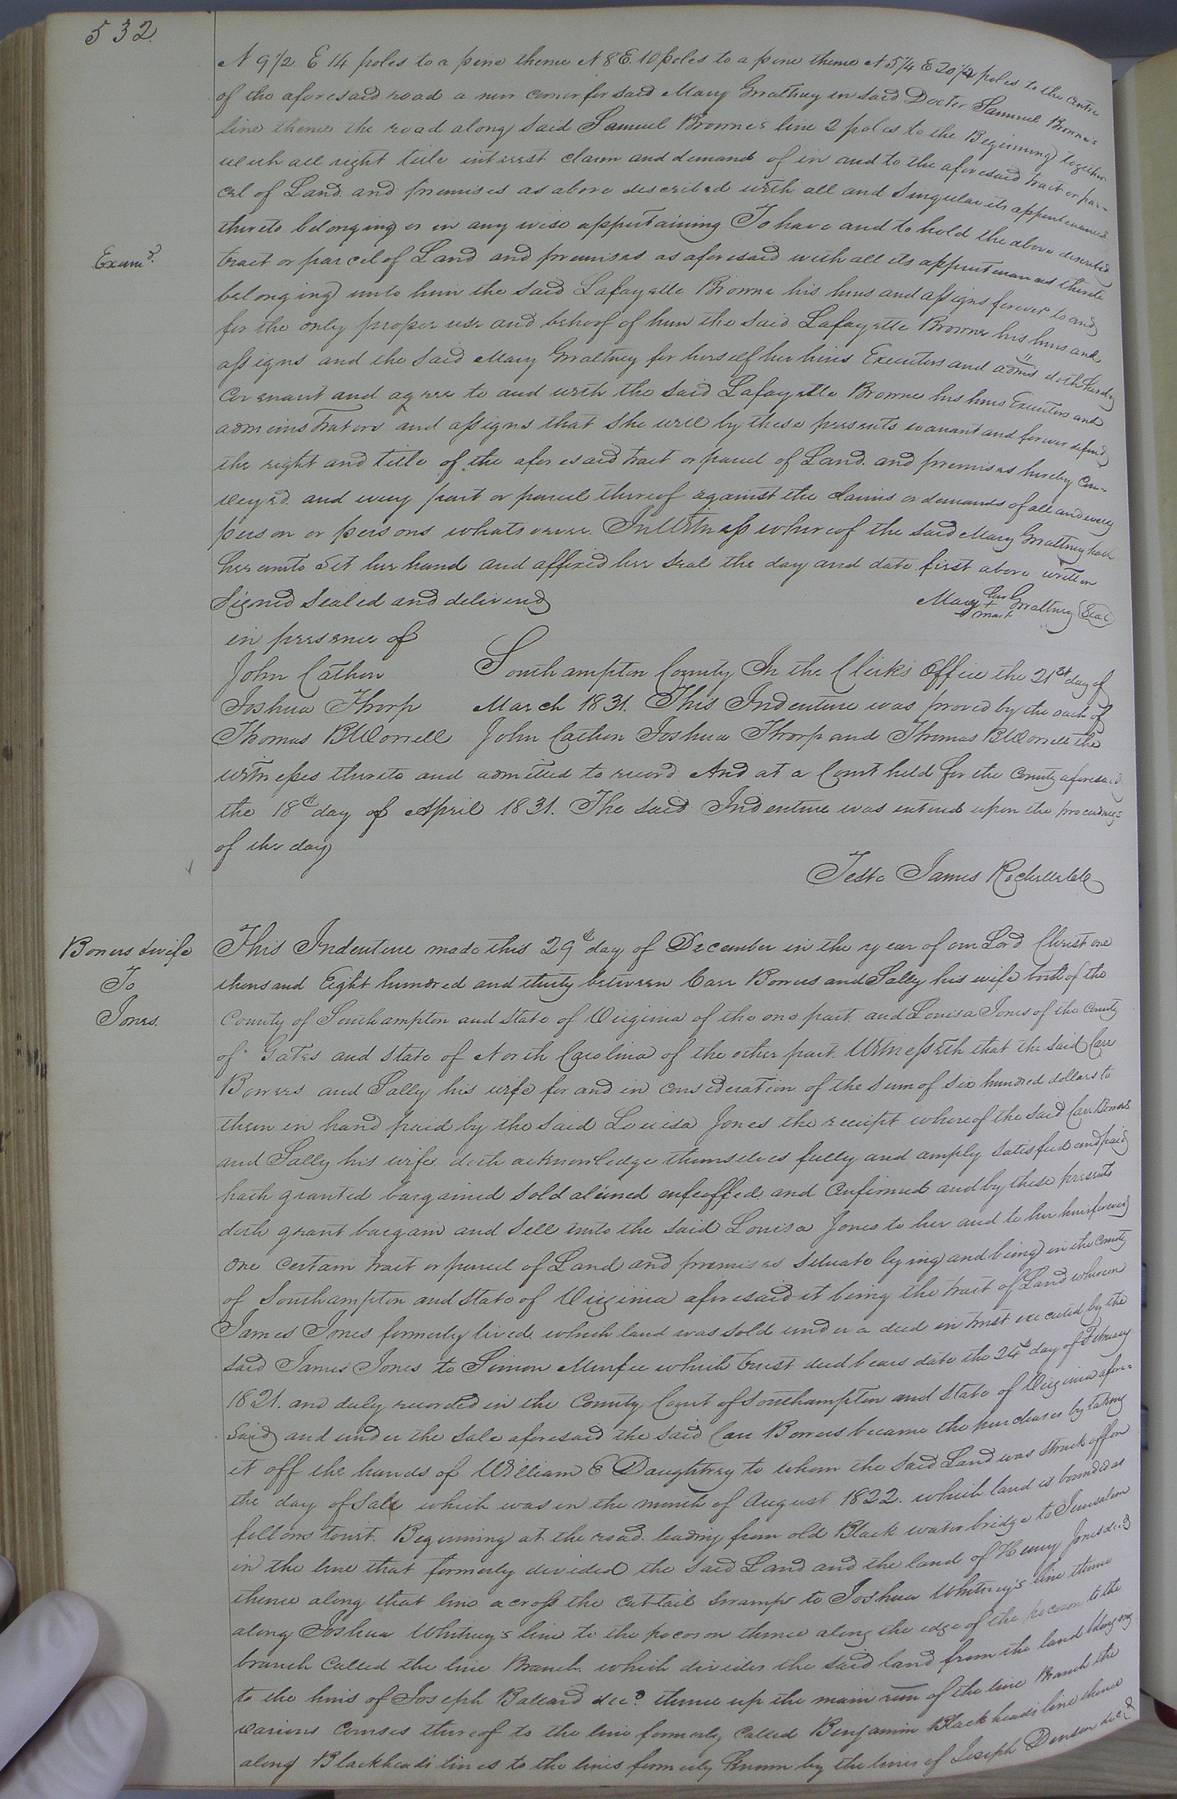 532.
N 9 1/2 E 14 poles to a pine thence N 8 E. 10 poles to a pine thence N 5 1/4 E 20 1/4 poles to the centre
of the aforesaid road a new corner for said Mary Gwaltney in said Docter Samuel Browne's
line thence the road along said Samuel Browne's line 2 poles to the Beginning together
with all right title interest claim and demand of in and to the aforesaid tract or par-
cel of Land and premises as above described with all and singular its appurtenances
thereto belonging or in any wise appertaining To have and to hold the above described
Exam.d
tract or parcel of Land and premises as aforesaid with all its appurtenances thereto
belonging unto him the said Lafayette Browne his heirs and assigns forever to and
for the only proper use and behoof of him the said Lafayette Browne his heirs and
assigns and the said Mary Gwaltney for herself her heirs Executors and admrs doth hereby
Covenant and agree to and with the said Lafayette Browne his heirs Executors and
administrators and assigns that she will by these presents warrant and forever defend
the right and title of the aforesaid tract or parcel of Land and premises hereby con-
veyed and every part or parcel thereof against the claims or demands of all and every
person or persons whatsoever. In Witness whereof the said Mary Gwaltney hath
hereunto set her hand and affixed her seal the day and date first above written
Signed Sealed and delivered
Mary her + mark Gwaltney (Seal)
in presence of
John Cathon
Joshua Thorp
Thomas B Worrell
Southampton County In the Clerk's Office the 21st day of
March 1831. This Indenture was proved by the oath of
John Cathon Joshua Thorp and Thomas B Worrell the
witnesses thereto and admitted to record And at a Court held for the County aforesaid
the 18th day of April 1831. The said Indenture was entered upon the proceedings
of the day
Teste James Rochelle Clk
Bowers & wife
To
Jones.
This Indenture made this 29th day of December in the year of our Lord Christ one
thousand Eight hundred and thirty between Carr Bowers and Sally his wife both of the
County of Southampton and State of Virginia of the one part and Louisa Jones of the County
of Gates and State of North Carolina of the other part. Witnesseth that the said Carr
Bowers and Sally his wife for and in consideration of the sum of six hundred dollars to
them in hand paid by the said Louisa Jones the receipt whereof the said Carr Bowers
and Sally his wife doth acknowledge themselves fully and amply satisfied and paid
hath granted bargained sold aliened enfeoffed and Confirmed and by these presents
doth grant bargain and sell unto the said Louisa Jones to her and to her heirs forever
one certain tract or parcel of Land and premises situate lying and being in the County
of Southampton and State of Virginia aforesaid it being the tract of Land whereon
James Jones formerly lived which land was sold under a deed in trust executed by the
said James Jones to Simon Murfee which trust deed bears date the 24th day of February
1821. and duly recorded in the County Court of Southampton and State of Virginia afore-
said and under the sale aforesaid the said Carr Bowers became the purchaser by taking
it off the hands of William E Daughtrey to whom the said Land was struck off on
the day of sale which was in the month of August 1822. which land is bounded as
follows towit. Beginning at the road leading from old Black water bridge to Jerusalem
in the line that formerly divided the said Land and the land of Henry Jones decd
thence along that line across the Cattail Swamp to Joshua Whitney's line thence
along Joshua Whitney's line to the pocoson thence along the edge of the pocoson to the
branch called the line Branch which divides the said land from the land belonging
to the heirs of Joseph Ballard decd. thence up the main run of the line Branch the
various courses thereof to the line formerly called Benjamin Blackheads line thence
along Blackheads lines to the lines formerly known by the lines of Joseph Denson decd